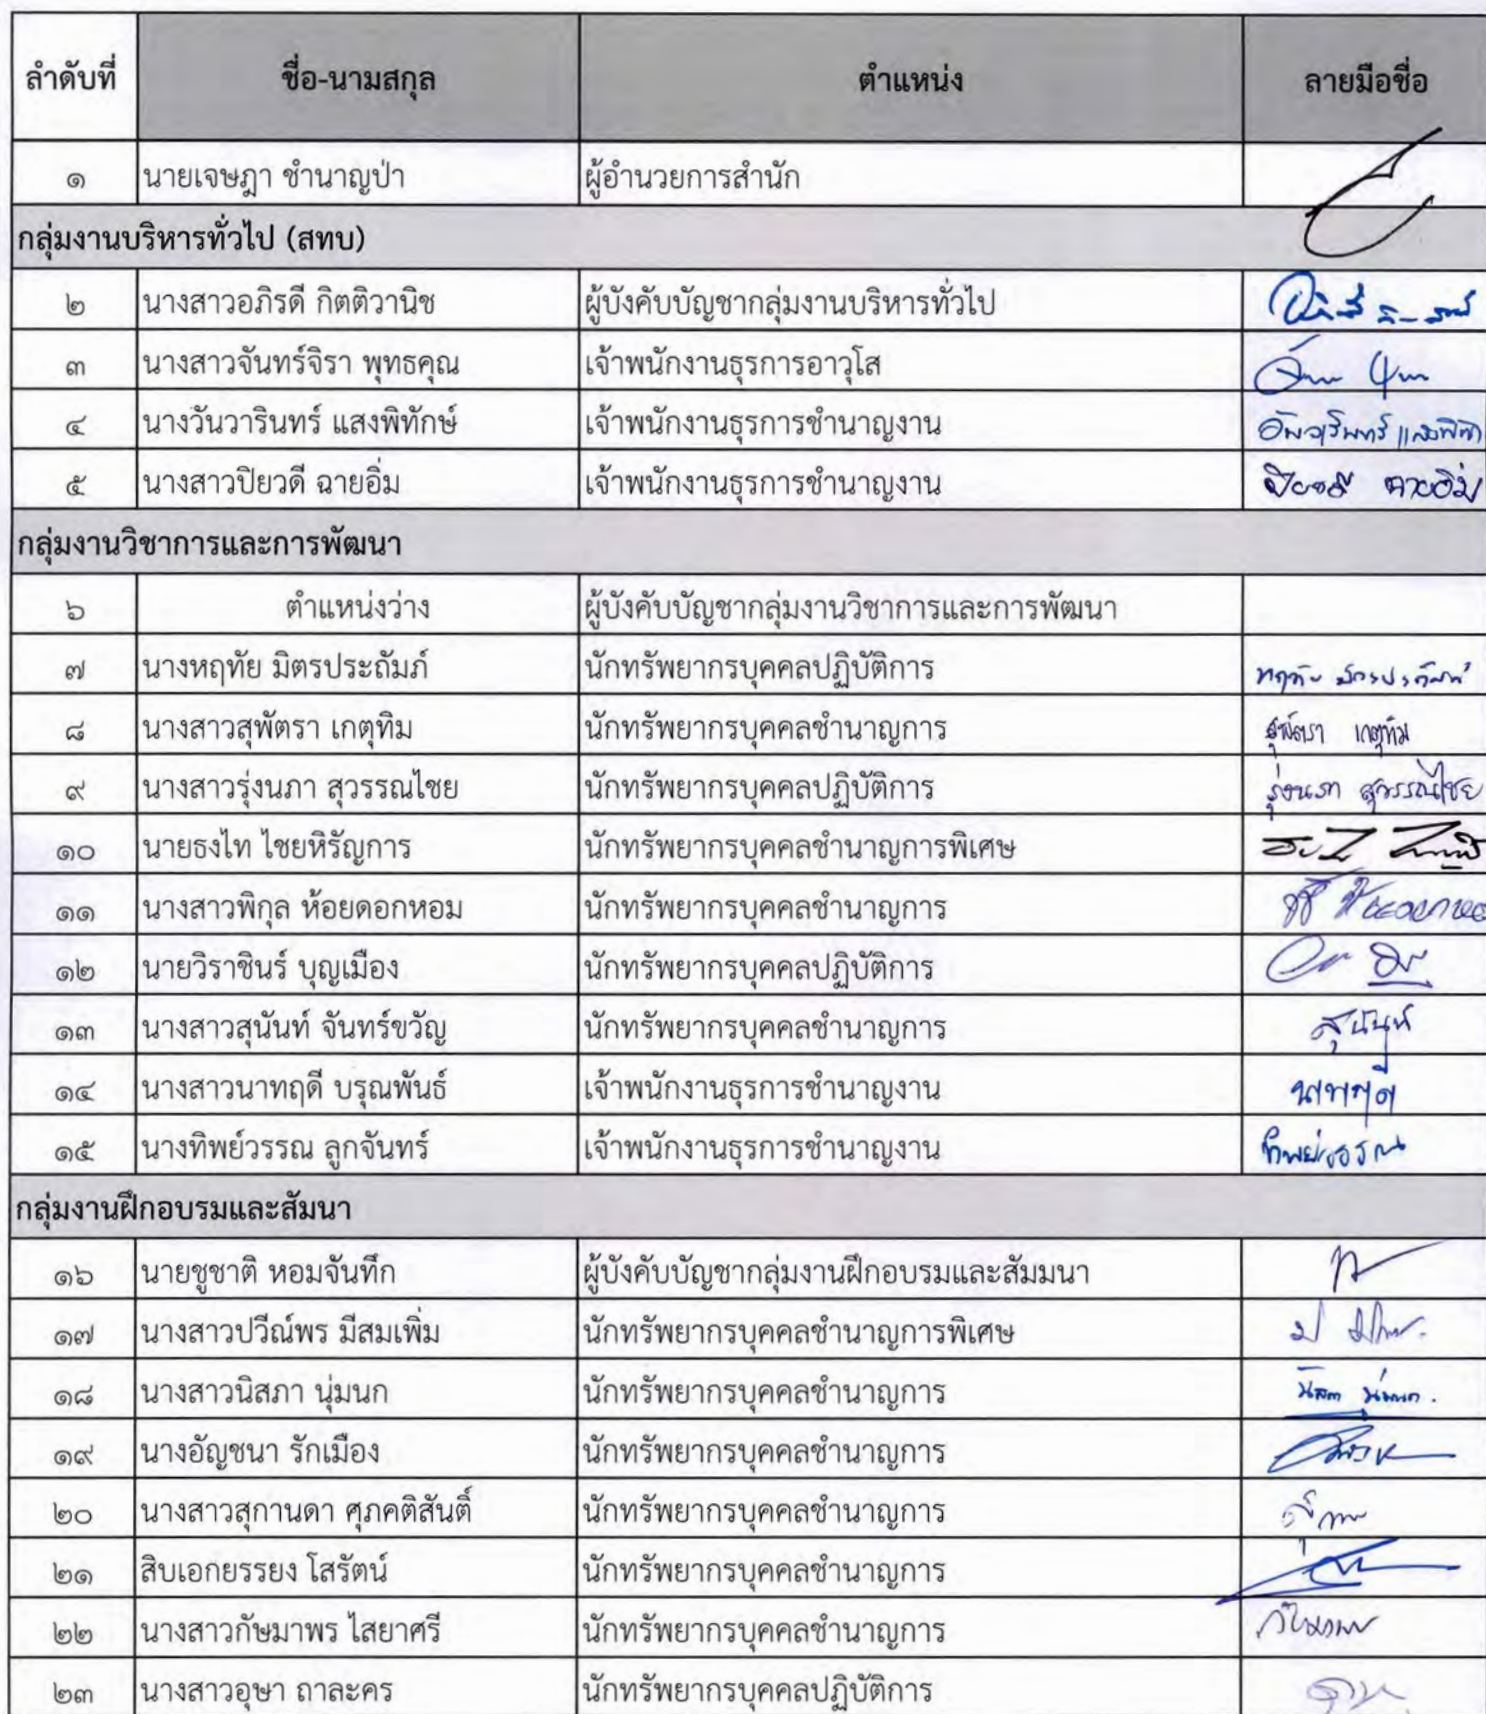 ลำดับที่ ชื่อ-นามสกุล ตำแหน่ง ลายมือชื่อ
๑ นายเจษฎา ชำนาญป่า ผู้อำนวยการสำนัก
กลุ่มงานบริหารทั่วไป (สทบ)
๒ นางสาวอภิรดี กิตติวานิช ผู้บังคับบัญชากลุ่มงานบริหารทั่วไป
๓ นางสาวจันทร์จิรา พุทธคุณ เจ้าพนักงานธุรการอาวุโส
๔ นางวันวารินทร์ แสงพิทักษ์ เจ้าพนักงานธุรการชำนาญงาน
๕ นางสาวปิยวดี ฉายอิ่ม เจ้าพนักงานธุรการชำนาญงาน ปิยวดี ฉายอิ่ม
กลุ่มงานวิชาการและการพัฒนา
๖ ตำแหน่งว่าง ผู้บังคับบัญชากลุ่มงานวิชาการและการพัฒนา
๗ นางหฤทัย มิตรประถัมภ์ นักทรัพยากรบุคคลปฏิบัติการ
๘ นางสาวสุพัตรา เกตุทิม นักทรัพยากรบุคคลชำนาญการ สุพัตรา เกตุทิม
๙ นางสาวรุ่งนภา สุวรรณไชย นักทรัพยากรบุคคลปฏิบัติการ รุ่งนภา สุวรรณไชย
๑๐ นายธงไท ไชยหิรัญการ นักทรัพยากรบุคคลชำนาญการพิเศษ
๑๑ นางสาวพิกุล ห้อยดอกหอม นักทรัพยากรบุคคลชำนาญการ
๑๒ นายวิราชินร์ บุญเมือง นักทรัพยากรบุคคลปฏิบัติการ
๑๓ นางสาวสุนันท์ จันทร์ขวัญ นักทรัพยากรบุคคลชำนาญการ สุนันท์
๑๔ นางสาวนาทฤดี บรุณพันธ์ เจ้าพนักงานธุรการชำนาญงาน นาทฤดี
๑๕ นางทิพย์วรรณ ลูกจันทร์ เจ้าพนักงานธุรการชำนาญงาน ทิพย์วรรณ
กลุ่มงานฝึกอบรมและสัมนา
๑๖ นายชูชาติ หอมจันทึก ผู้บังคับบัญชากลุ่มงานฝึกอบรมและสัมมนา
๑๗ นางสาวปวีณ์พร มีสมเพิ่ม นักทรัพยากรบุคคลชำนาญการพิเศษ
๑๘ นางสาวนิสภา นุ่มนก นักทรัพยากรบุคคลชำนาญการ
๑๙ นางอัญชนา รักเมือง นักทรัพยากรบุคคลชำนาญการ
๒๐ นางสาวสุกานดา ศุภคติสันติ์ นักทรัพยากรบุคคลชำนาญการ
๒๑ สิบเอกยรรยง โสรัตน์ นักทรัพยากรบุคคลชำนาญการ
๒๒ นางสาวกัษมาพร ไสยาศรี นักทรัพยากรบุคคลชำนาญการ
๒๓ นางสาวอุษา ถาละคร นักทรัพยากรบุคคลปฏิบัติการ